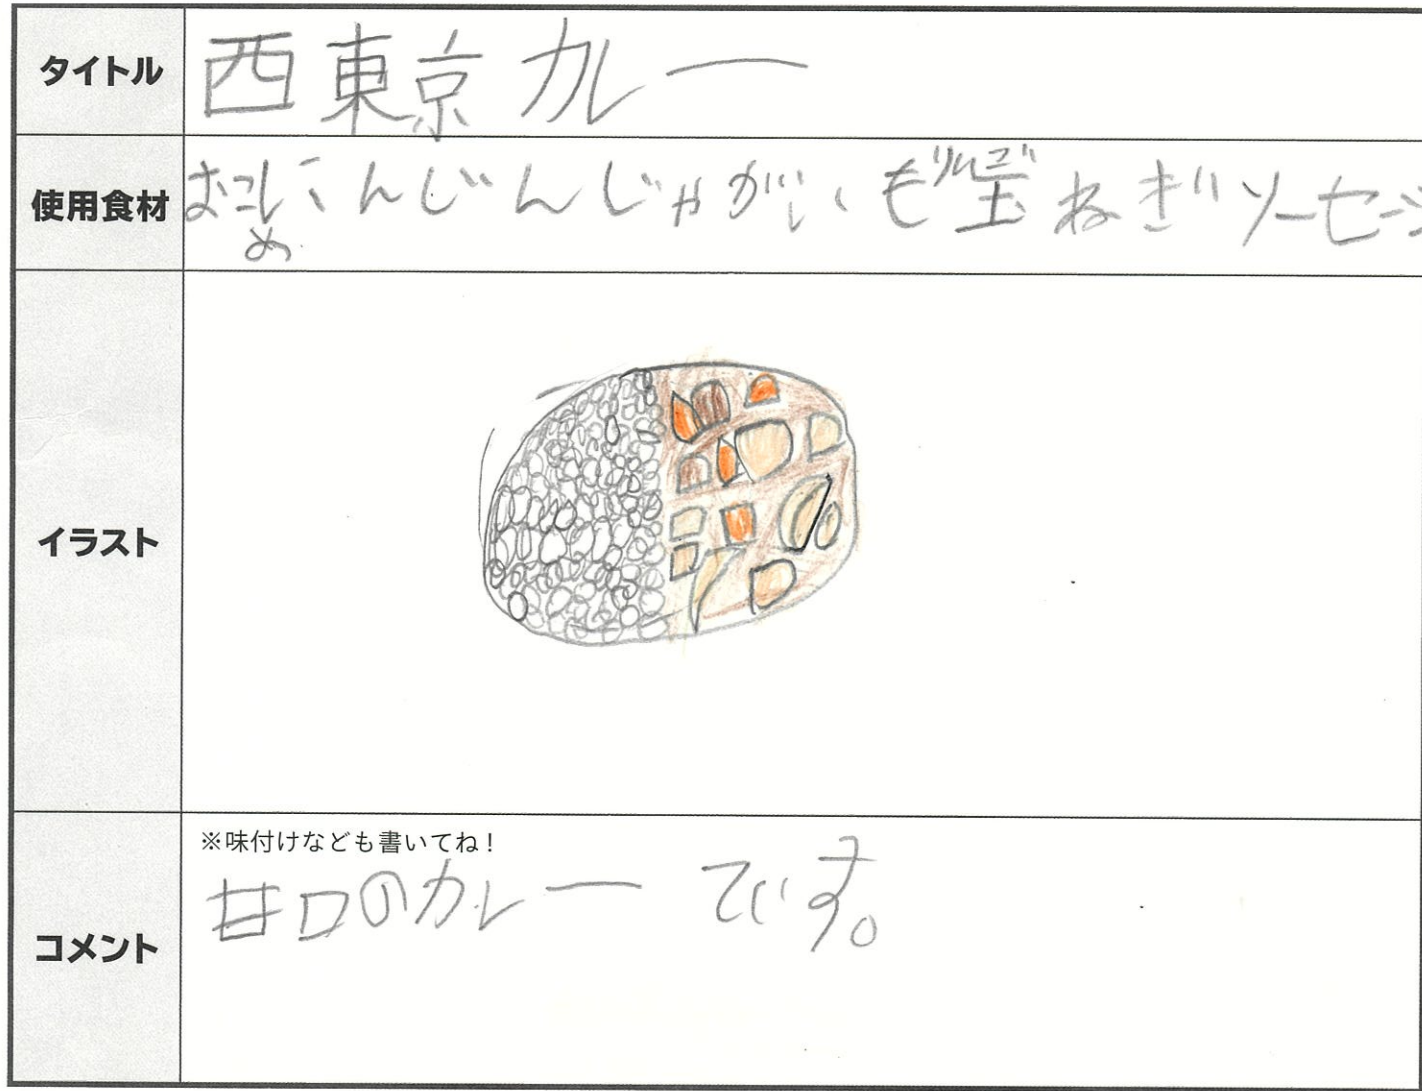 タイトル
西東京カレー
使用食材
おこめ にんじん じゃがいも りんご 玉ねぎ ソーセージ
イラスト
コメント
※味付けなども書いてね!
甘口のカレーです。